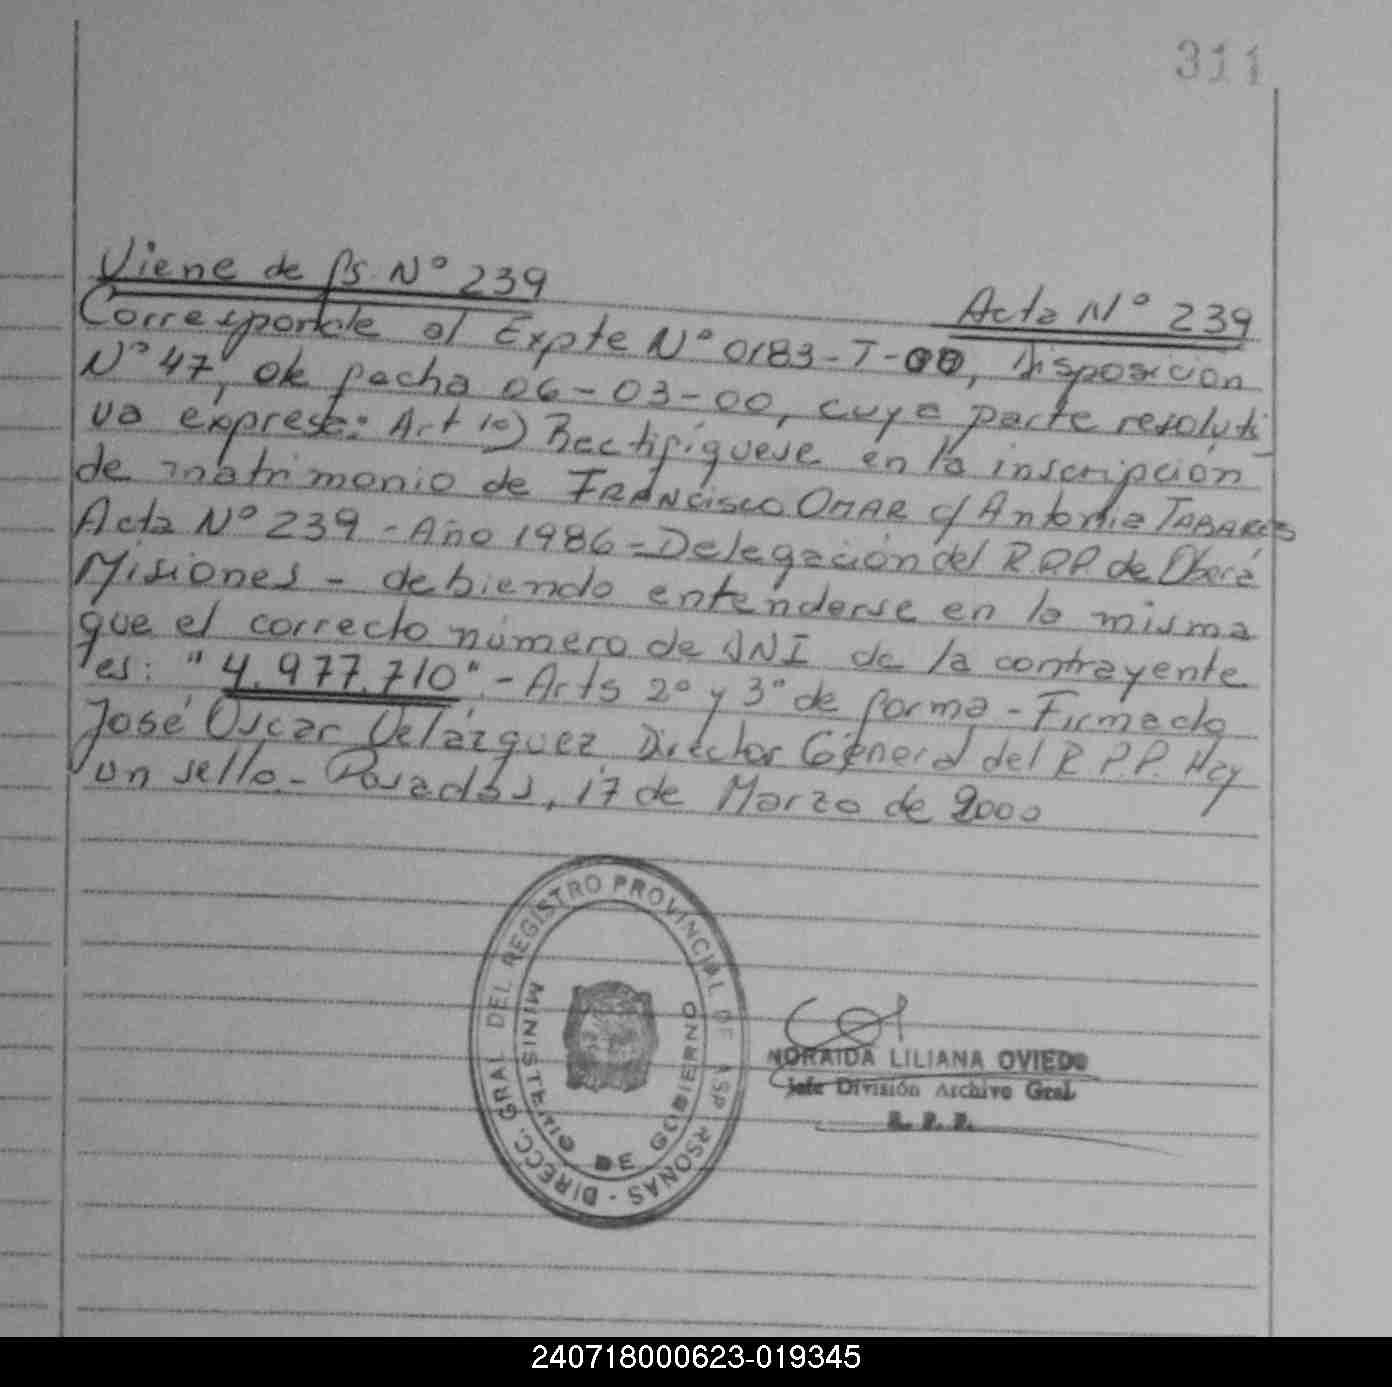 311
Viene de fs. Nº 239
Acta Nº 239
Corresponde al Expte Nº 0183-T-00, Disposición
Nº 47, de fecha 06-03-00, cuya parte resoluti
va expresa: Art 1º) Rectifíquese en la inscripción
de matrimonio de FRANCisco OMAR c/ Antonia TABARES
Acta Nº 239 - Año 1986 - Delegación del R.P.P. de Oberá
Misiones - debiendo entenderse en la misma
que el correcto número de DNI de la contrayente
es: "4.977.710" - Arts 2º y 3º de forma - Firmado
José Oscar Velázquez Director General del R.P.P. Hay
un sello - Posadas, 17 de Marzo de 2000
DIRECC. GRAL DEL REGISTRO PROVINCIAL DE
MINISTERIO DE GOBIERNO
NORAIDA LILIANA OVIEDO
Jefe División Archivo Gral
R. P. P.
240718000623-019345